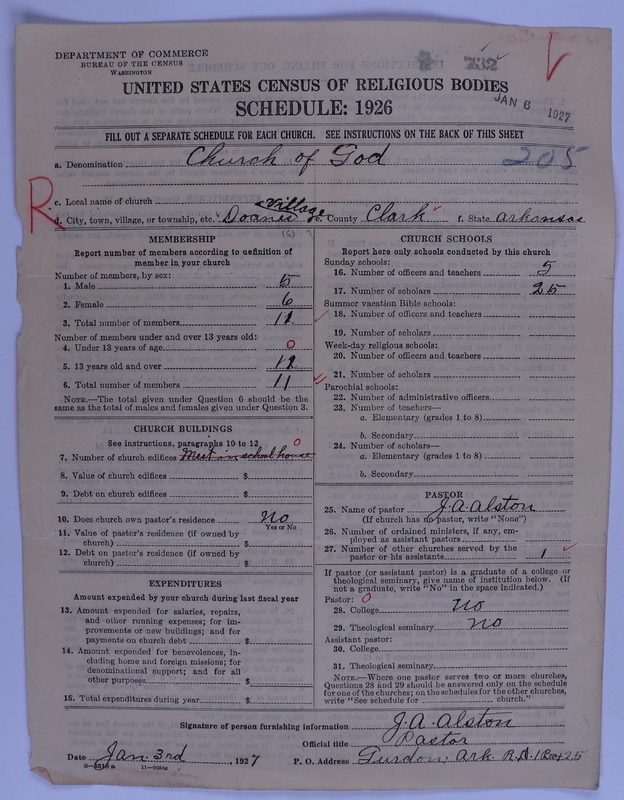 DEPARTMENT OF COMMERCE
BUREAU OF THE CENSUS
WASHINGTON
UNITED STATES CENSUS OF RELIGIOUS BODIES
SCHEDULE: 1926
JAN 6 1927
FILL OUT A SEPARATE SCHEDULE FOR EACH CHURCH. SEE INSTRUCTIONS ON THE BACK OF THIS SHEET
a. Denomination Church of God 205
R
c. Local name of church
Village
d. City, town, village, or township, etc. e. County Clark f. State Arkansas
MEMBERSHIP
Report number of members according to definition of
member in your church
Number of members, by sex:
1. Male 5
2. Female 6
3. Total number of members 11
Number of members under and over 13 years old:
4. Under 13 years of age 0
5. 13 years old and over 11
6. Total number of members 11
NOTE.—The total given under Question 6 should be
same as the total of males and females given under Question 3.
CHURCH BUILDINGS
See instructions, paragraphs 10 to 12
7. Number of church edifices Meet in school house 0
8. Value of church edifices $
9. Debt on church edifices $
10. Does church own pastor's residence No
Yes or No
11. Value of pastor's residence (if owned by
church) $
12. Debt on pastor's residence (if owned by
church) $
EXPENDITURES
Amount expended by your church during last fiscal year
13. Amount expended for salaries, repairs,
and other running expenses; for im-
provements or new buildings; and for
payments on church debt $
14. Amount expended for benevolences, in-
cluding home and foreign missions; for
denominational support; and for all
other purposes $
15. Total expenditures during year $
CHURCH SCHOOLS
Report here only schools conducted by this church
Sunday schools:
16. Number of officers and teachers 5
17. Number of scholars 25
Summer vacation Bible schools:
18. Number of officers and teachers
19. Number of scholars
Week-day religious schools:
20. Number of officers and teachers
21. Number of scholars
Parochial schools:
22. Number of administrative officers
23. Number of teachers—
a. Elementary (grades 1 to 8)
b. Secondary
24. Number of scholars—
a. Elementary (grades 1 to 8)
b. Secondary
PASTOR
25. Name of pastor J. A. Alston
(If church has no pastor, write "None")
26. Number of ordained ministers, if any, em-
ployed as assistant pastors
27. Number of other churches served by the
pastor or his assistants 1
If pastor (or assistant pastor) is a graduate of a college or
theological seminary, give name of institution below. (If
not a graduate, write "No" in the space indicated.)
Pastor: 0
28. College no
29. Theological seminary no
Assistant pastor:
30. College
31. Theological seminary
NOTE.—Where one pastor serves two or more churches,
Questions 28 and 29 should be answered only on the schedule
for one of the churches; on the schedules for the other churches,
write "See schedule for church."
Signature of person furnishing information J. A. Alston
Official title Pastor
Date Jan. 3rd, 1927 P. O. Address Gurdon, Ark R.D. 1 Box 25